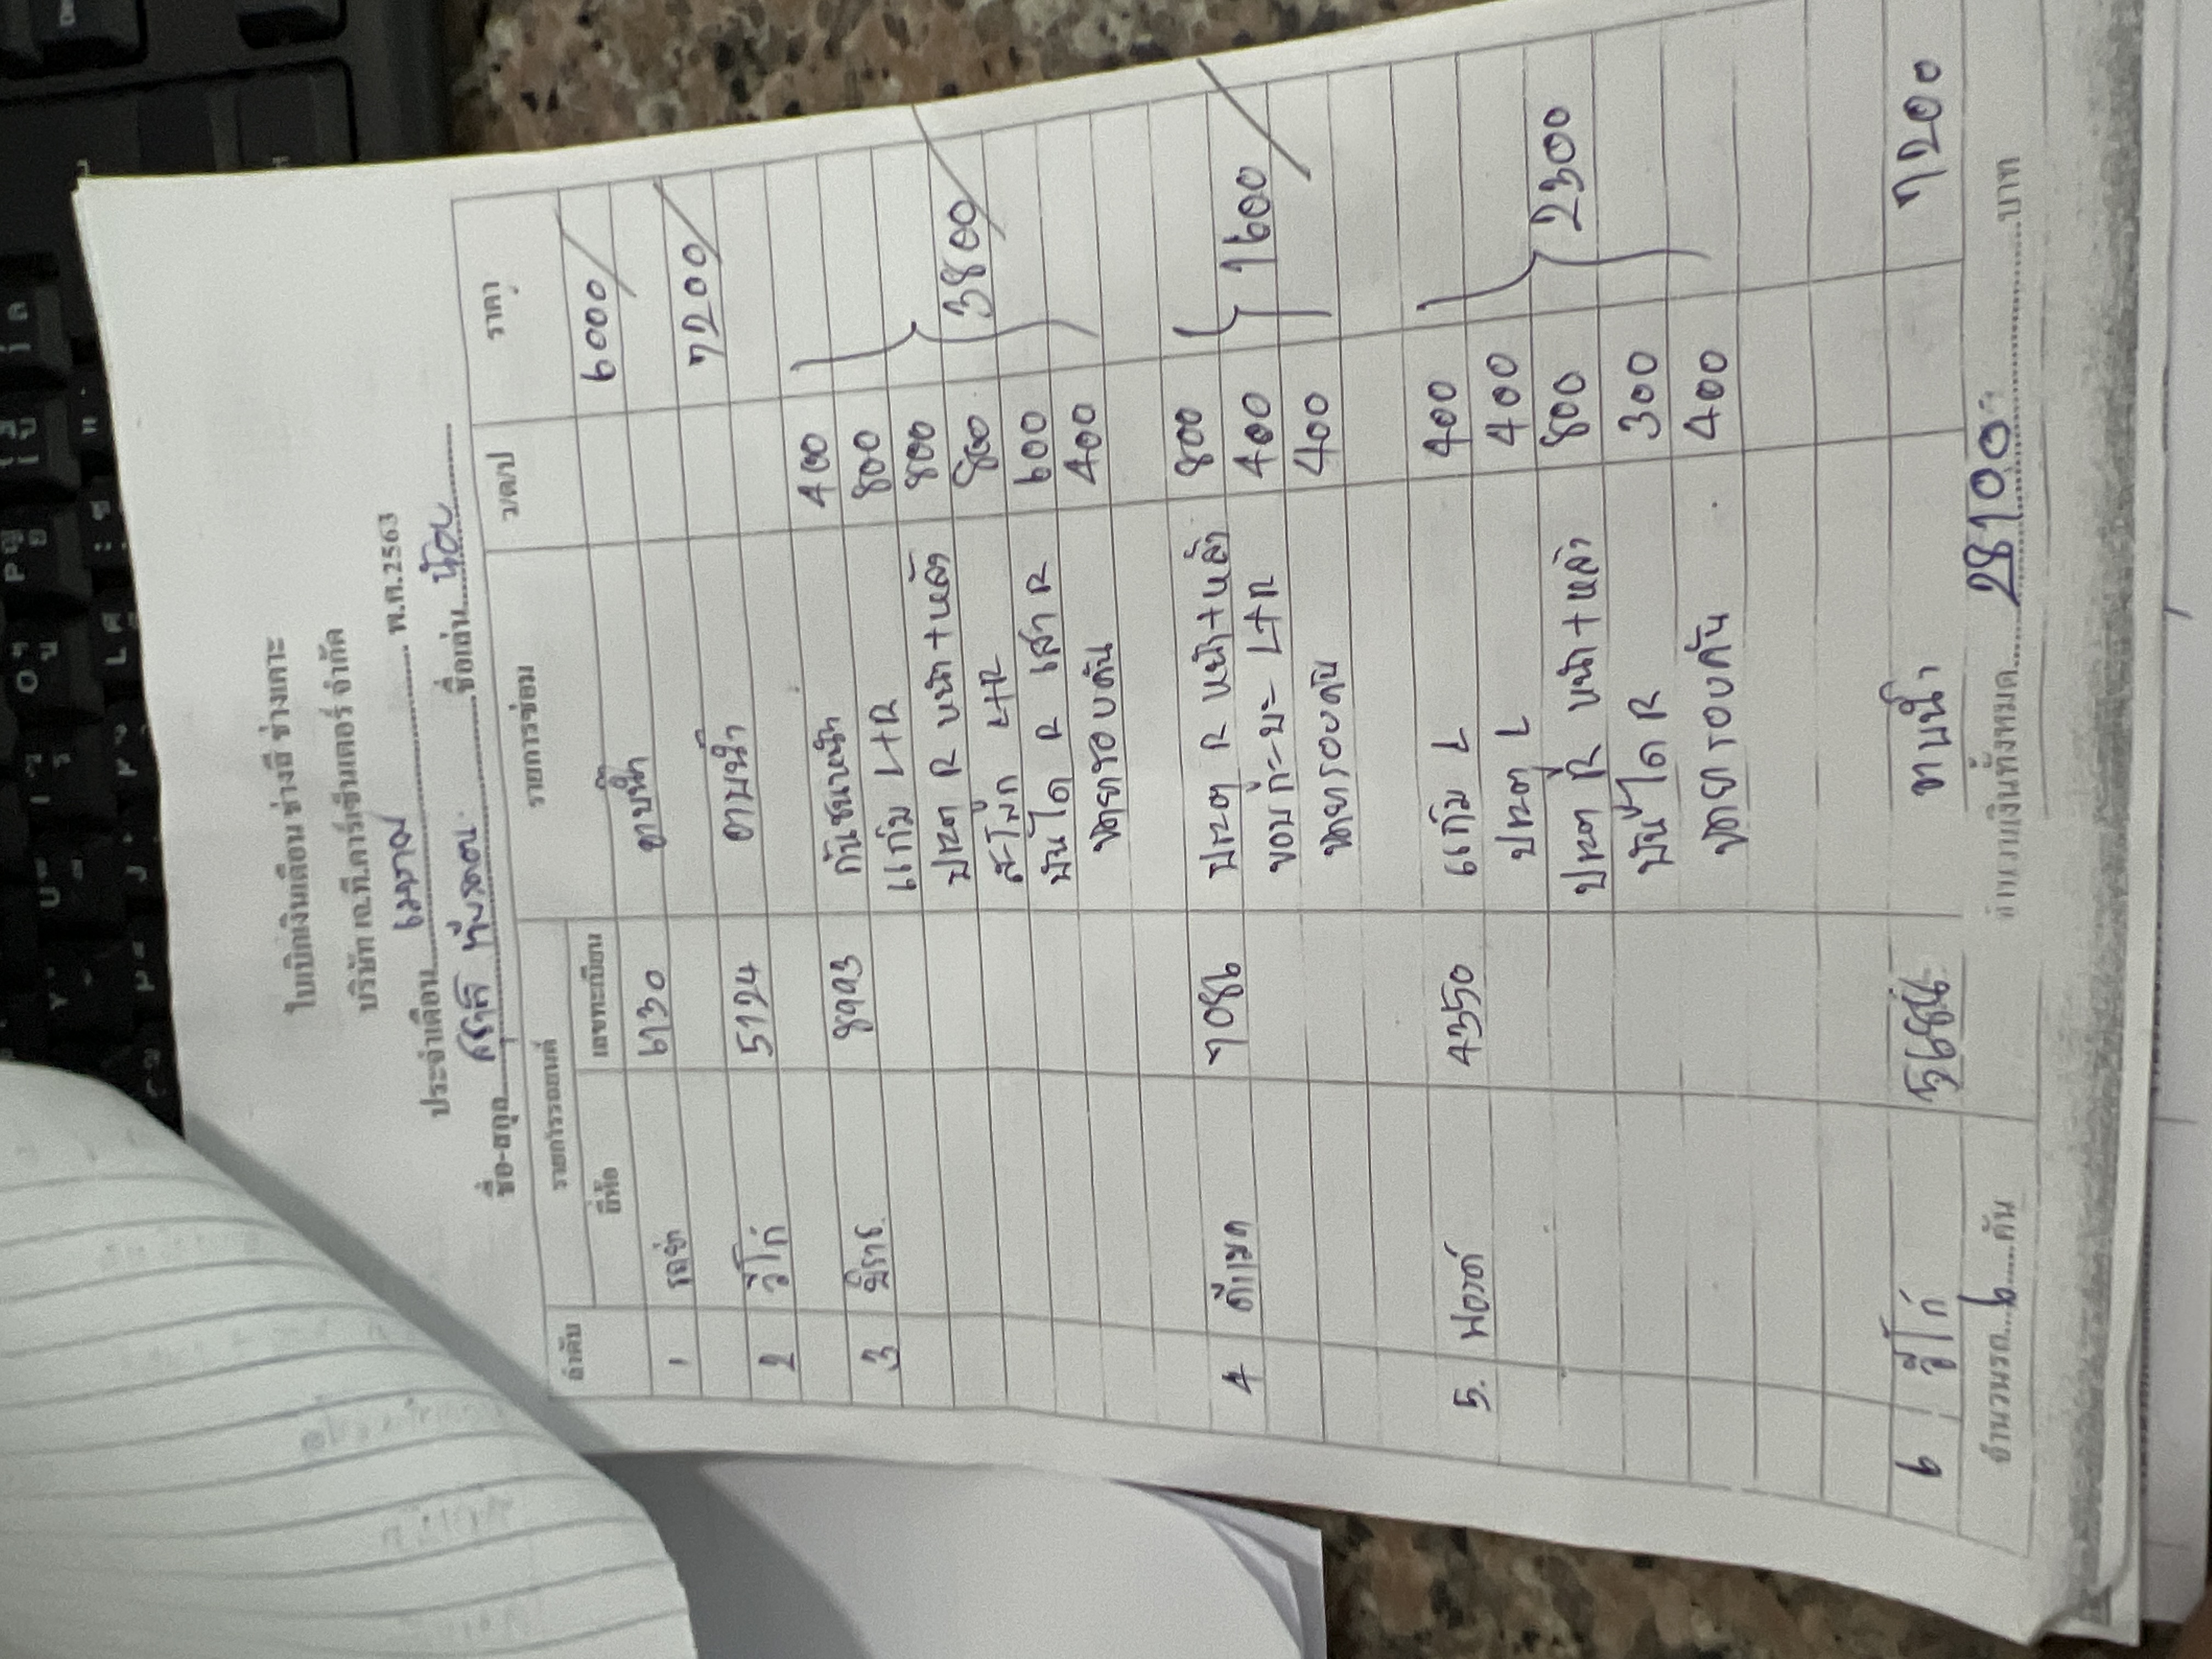 ใบเบิกเงินเดือน ช่างสี ช่างเคาะ
บริษัท เจ.ที.คาร์เซ็นเตอร์ จำกัด
ประจำเดือน เมษายน พ.ศ.2563
ชื่อ-สกุล ชื่อเล่น น้อย
ลำดับ รายการรถยนต์ รายการซ่อม ว/ด/ป ราคา
ยี่ห้อ เลขทะเบียน
1 6130 6000
2 วีโก้ 5124 7200
3 มิราจ 8993 กันชนหน้า 400
แก้ม L+R 800
ประตู R หน้า+หลัง 800
สะโพก L+R 800 3800
บันได R เสา R 600
400
4 ดีแมค 7086 ประตู R หน้า+หลัง 800
400 1600
400
5. ฟอร์ด 4350 แก้ม L 400
ประตู L 400
ประตู R หน้า+หลัง 800 2300
บันได R 300
400
6 วีโก้ 7200
จำนวนรถ 6 คัน จำนวนเงินทั้งหมด 28100 บาท